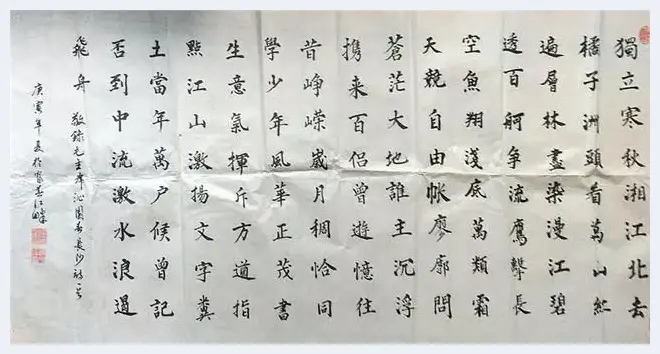 獨立寒秋湘江北去
橘子洲頭看萬山紅
遍層林盡染漫江碧
透百舸争流鷹擊長
空魚翔淺底萬類霜
天競自由帐廖廓問
蒼茫大地誰主沉浮
携来百侣曾遊憶往
昔峥嵘歲月稠恰同
學少年風華正茂書
生意氣揮斥方遒指
點江山激揚文字糞
土當年萬户候曾記
否到中流激水浪遏
飛舟 敬録毛主席沁園春長沙詞一首
庚寅年夏於富春江畔